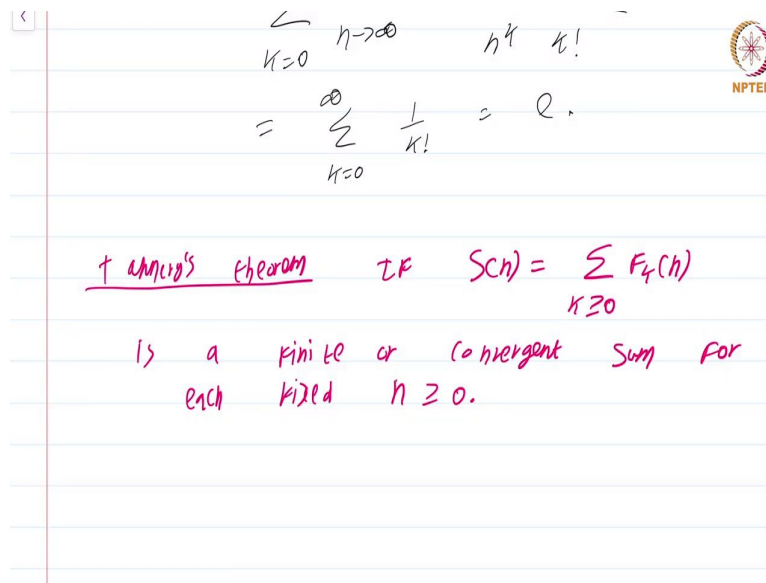 k=0 n->∞ n^k k!
∞
= Σ 1/k! = e.
k=0
NPTEL
Tannery's theorem If S(n) = Σ F_k(n)
k≥0
is a finite or convergent sum for
each fixed n ≥ 0.